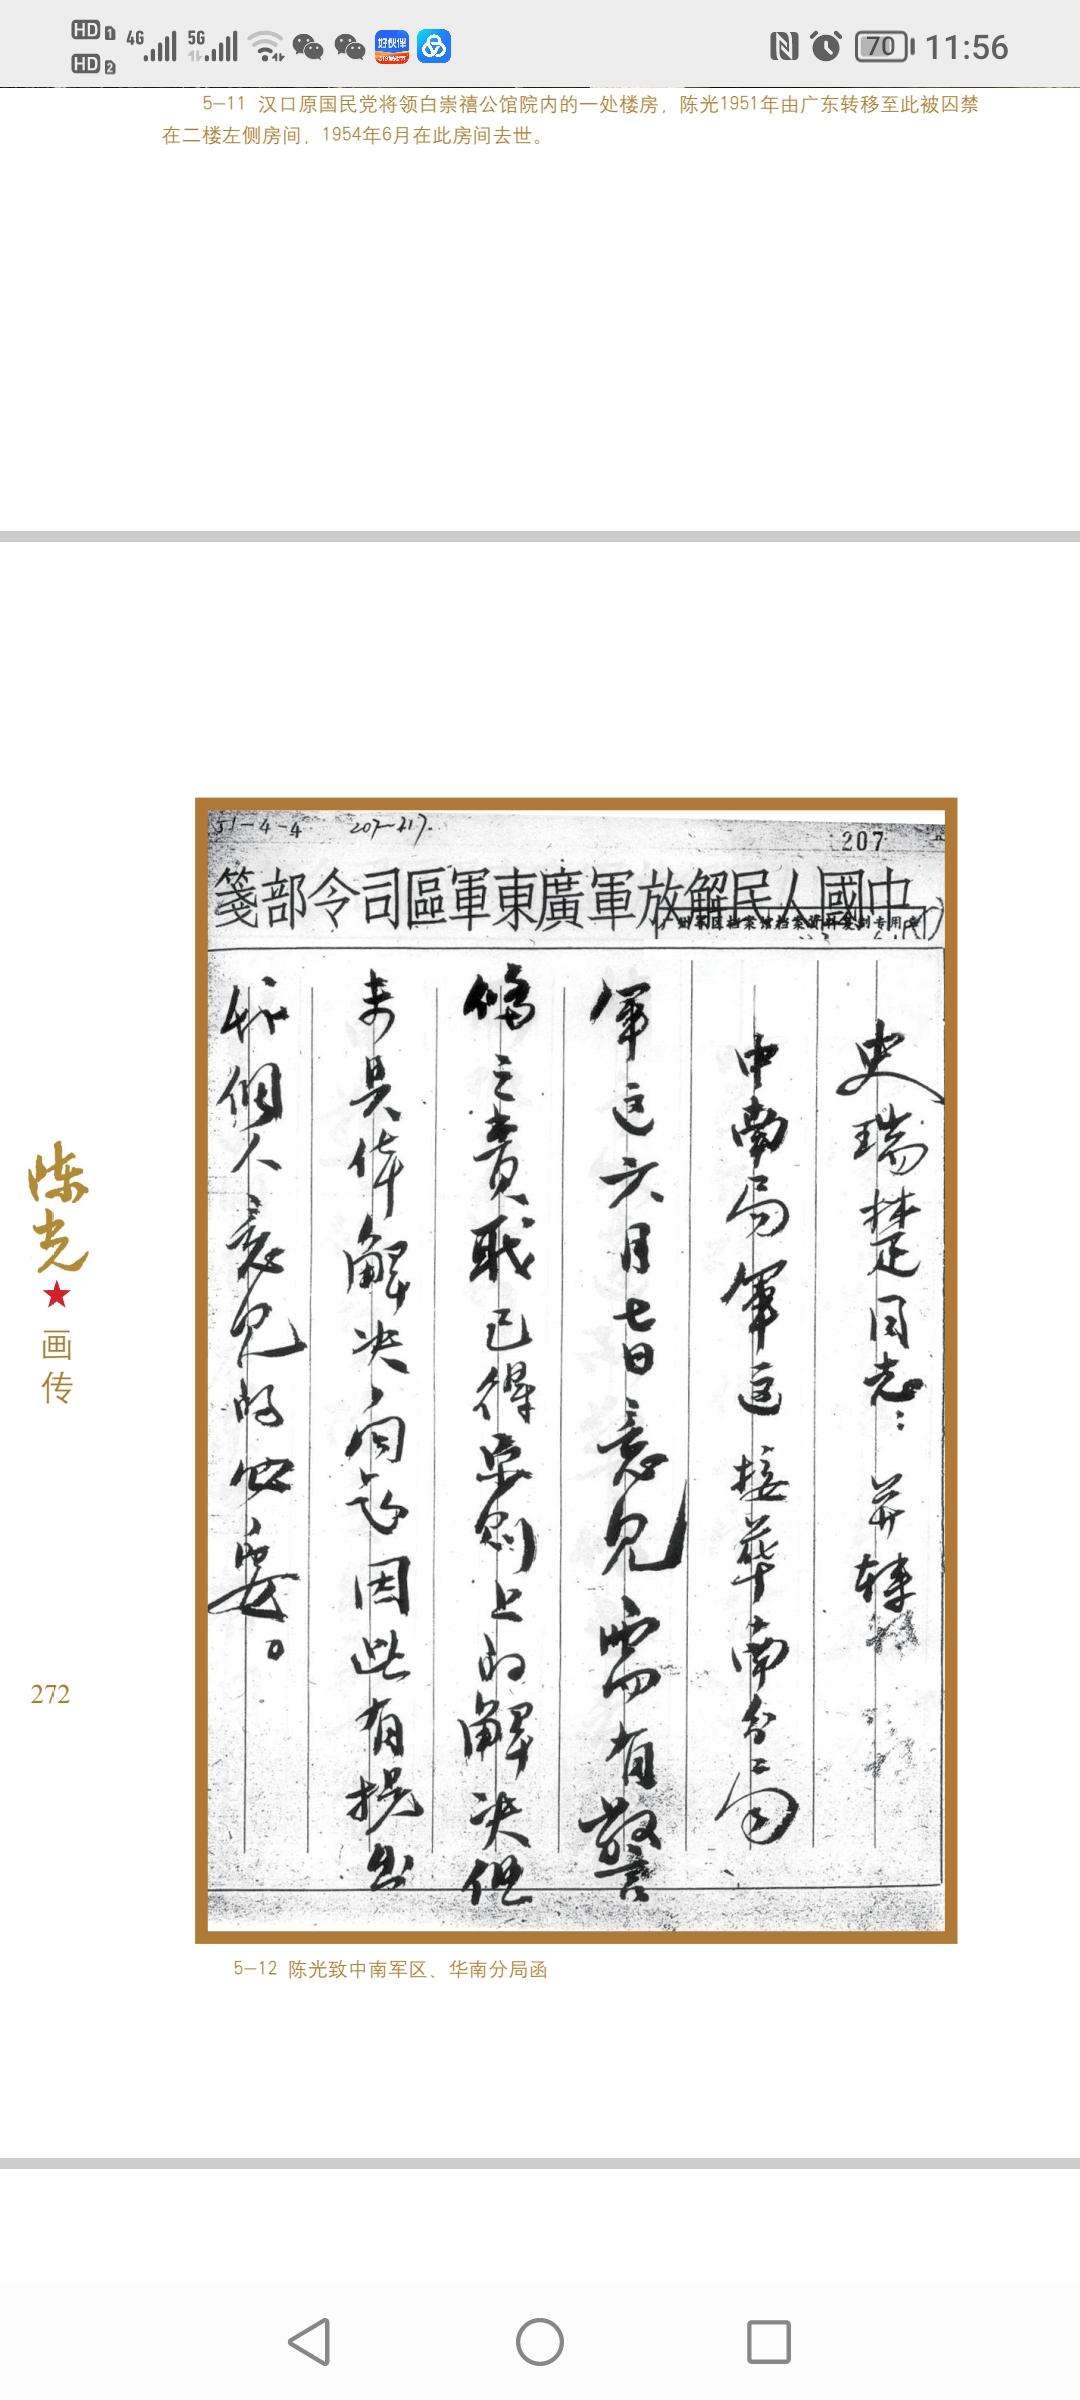 HD 1
HD 2
4G
5G
好伙伴
70
11:56
5-11 汉口原国民党将领白崇禧公馆院内的一处楼房，陈光1951年由广东转移至此被囚禁
在二楼左侧房间，1954年6月在此房间去世。
51-4-4 207-217.
207
中國人民解放軍廣東軍區司令部箋
史瑞楚同志：并转
中南局军区 接华南分局
军区六月七日意见需有警
备之责职已得原则上的解决但
未具体解决向题因此有提出
我個人意见的必要。
陈光
画传
272
5-12 陈光致中南军区、华南分局函